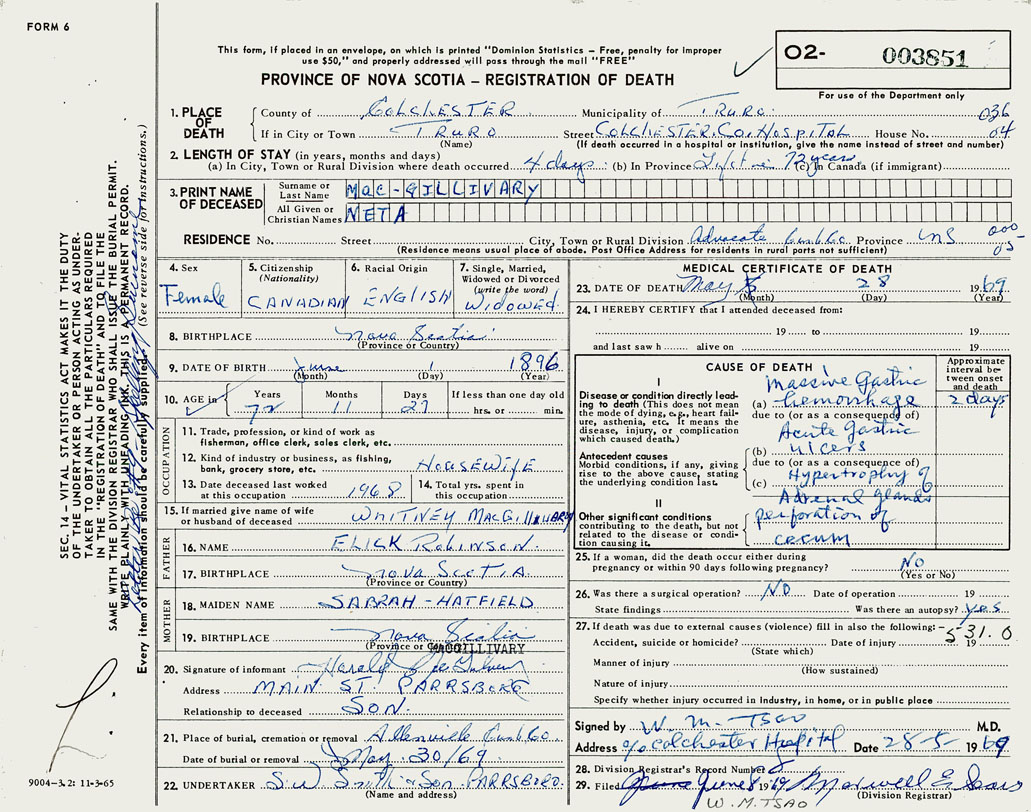 FORM 6
This form, if placed in an envelope, on which is printed "Dominion Statistics – Free, penalty for improper
use $50," and properly addressed will pass through the mail "FREE"
PROVINCE OF NOVA SCOTIA – REGISTRATION OF DEATH
02- 003851
For use of the Department only
1. PLACE OF DEATH County of COLCHESTER Municipality of TRURO 036
If in City or Town TRURO Street COLCHESTER. CO. HOSPITAL House No. 04
(Name) (If death occurred in a hospital or institution, give the name instead of street and number)
2. LENGTH OF STAY (in years, months and days)
(a) In City, Town or Rural Division where death occurred 4 days (b) In Province Lifetime 72 years (c) In Canada (if immigrant)
3. PRINT NAME OF DECEASED Surname or Last Name MAC-GILLIVARY
All Given or Christian Names NETA
RESIDENCE No. Street City, Town or Rural Division Advocate Cumb Co. Province NS 000-
(Residence means usual place of abode. Post Office Address for residents in rural parts not sufficient) 05
4. Sex Female
5. Citizenship (Nationality) CANADIAN
6. Racial Origin ENGLISH
7. Single, Married, Widowed or Divorced (write the word) WIDOWED
8. BIRTHPLACE Nova Scotia
(Province or Country)
9. DATE OF BIRTH June 1 1896
(Month) (Day) (Year)
10. AGE in Years Months Days If less than one day old
72 11 27 hrs. or min.
OCCUPATION
11. Trade, profession, or kind of work as
fisherman, office clerk, sales clerk, etc.
12. Kind of industry or business, as fishing,
bank, grocery store, etc. HOUSEWIFE
13. Date deceased last worked at this occupation 1968 14. Total yrs. spent in this occupation
15. If married give name of wife
or husband of deceased WHITNEY MACGILLIVARY
FATHER
16. NAME ELICK ROBINSON.
17. BIRTHPLACE NOVA SCOTIA.
(Province or Country)
MOTHER
18. MAIDEN NAME SABRAH - HATFIELD
19. BIRTHPLACE Nova Scotia
(Province or Country)
20. Signature of informant Harold
Address MAIN ST. PARRSBORO
Relationship to deceased SON.
21. Place of burial, cremation or removal Allenville Cumb Co.
Date of burial or removal May 30/69
22. UNDERTAKER S.W. Smith & Son. PARRSBORO.
(Name and address)
MEDICAL CERTIFICATE OF DEATH
23. DATE OF DEATH May 28 1969
(Month) (Day) (Year)
24. I HEREBY CERTIFY that I attended deceased from:
19 to 19
and last saw h alive on 19
CAUSE OF DEATH
Approximate interval between onset and death
I
Disease or condition directly leading to death (This does not mean the mode of dying, e.g., heart failure, asthenia, etc. It means the disease, injury, or complication which caused death.)
Massive Gastric
(a) hemorrhage 2 days
due to (or as a consequence of)
Acute Gastric
Antecedent causes
Morbid conditions, if any, giving rise to the above cause, stating the underlying condition last.
(b) ulcers
due to (or as a consequence of)
(c) Hypertrophy of
Adrenal glands
II
Other significant conditions
contributing to the death, but not related to the disease or condition causing it.
perforation of
cecum
25. If a woman, did the death occur either during
pregnancy or within 90 days following pregnancy? NO
(Yes or No)
26. Was there a surgical operation? NO Date of operation 19
State findings Was there an autopsy? yes
27. If death was due to external causes (violence) fill in also the following: - 531.0
Accident, suicide or homicide? Date of injury 19
(State which)
Manner of injury
(How sustained)
Nature of injury
Specify whether injury occurred in industry, in home, or in public place
Signed by W. M. TSAO M.D.
Address c/o Colchester Hospital Date 28-5- 1969
28. Division Registrar's Record Number
29. Filed June 8 1969 Maxwell E.
(Division Registrar)
W.M.TSAO
SEC. 14 – VITAL STATISTICS ACT MAKES IT THE DUTY
OF THE UNDERTAKER OR PERSON ACTING AS UNDER-
TAKER TO OBTAIN ALL THE PARTICULARS REQUIRED
IN THE "REGISTRATION OF DEATH" AND TO FILE THE
SAME WITH THE DIVISION REGISTRAR WHO SHALL ISSUE THE BURIAL PERMIT.
WRITE PLAINLY WITH UNFADING INK. THIS IS A PERMANENT RECORD.
Every item of information should be carefully supplied. (See reverse side for instructions.)
9004-3.2: 11-3-65